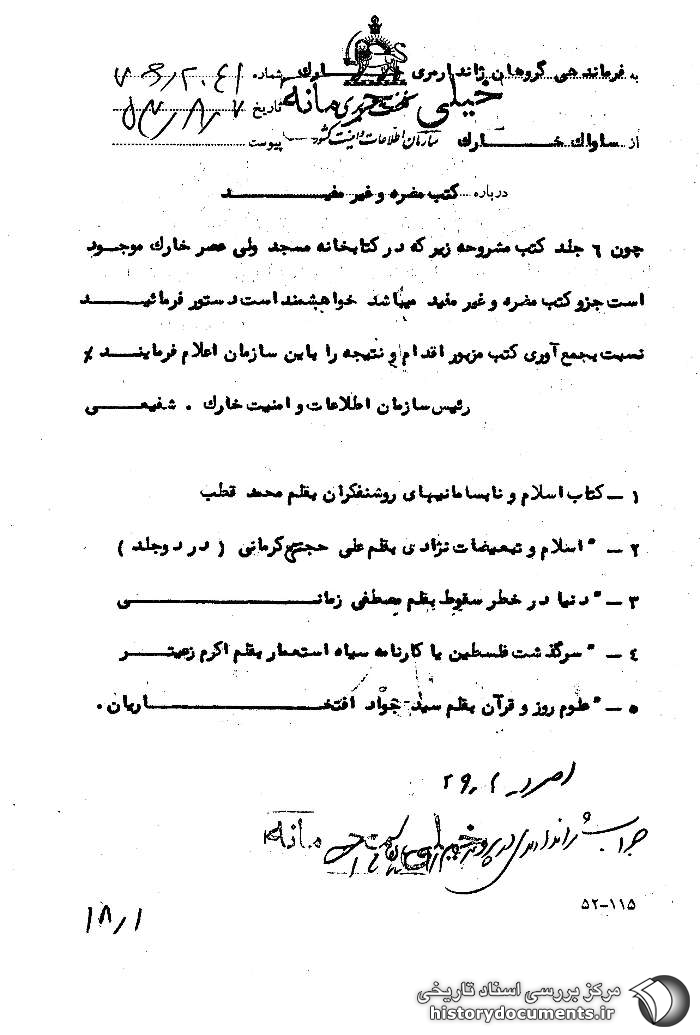 به فرماندهی گروهان ژاندارمری خارك شماره
خیلی محرمانه
تاریخ
از ساواك خارك سازمان اطلاعات و امنیت کشور پیوست
درباره کتب مضره و غیر مفید
چون ۶ جلد کتب مشروحه زیر که در کتابخانه مسجد ولی عصر خارك موجود
است جزو کتب مضره و غیر مفید میباشد خواهشمند است دستور فرمائید
نسبت بجمع آوری کتب مزبور اقدام و نتیجه را باین سازمان اعلام فرمایند ٪
رئیس سازمان اطلاعات و امنیت خارك . شفیعی
۱ – کتاب اسلام و نابسامانیهای روشنفکران بقلم محمد قطب
۲ – " اسلام و تبعیضات نژادی بقلم علی حجتی کرمانی ( در دو جلد )
۳ – " دنیا در خطر سقوط بقلم مصطفی زمانی
٤ – " سرگذشت فلسطین یا کارنامه سیاه استعمار بقلم اکرم زعیتر
۵ – " علوم روز و قرآن بقلم سید جواد افتخاریان .
جواب ژاندارمری در پرونده
خیلی محرمانه
۵۲-۱۱۵
۱۸٫۱
مرکز بررسی اسناد تاریخی
historydocuments.ir